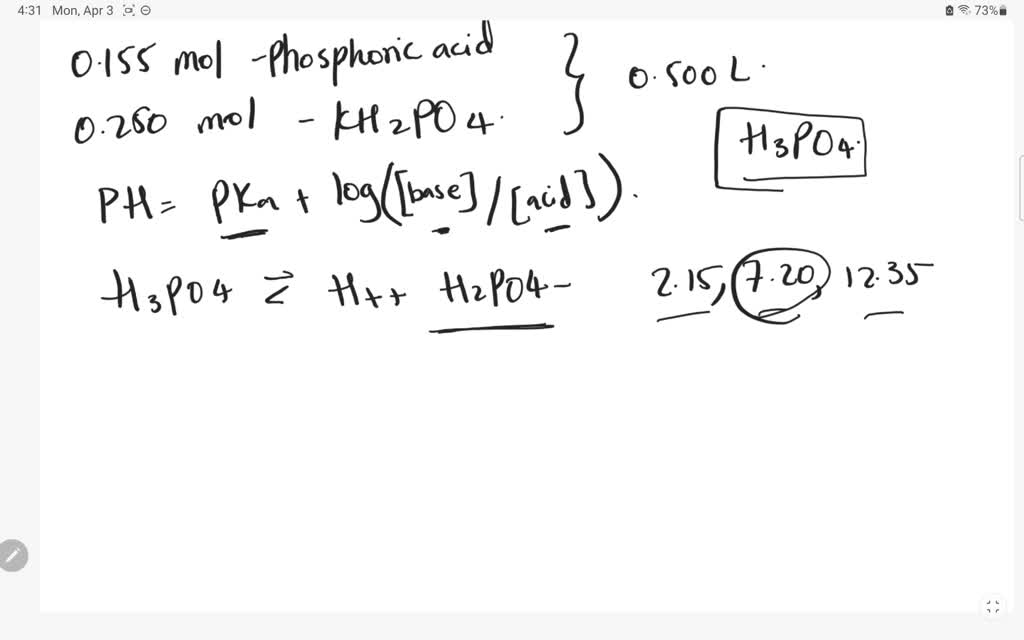 4:31 Mon, Apr 3 73%
0.155 mol -Phosphoric acid
0.250 mol - KH2PO4.
0.500 L.
H3PO4.
PH = PKa + log([base]/[acid]).
H3PO4 ⇌ H++ H2PO4-
2.15, 7.20, 12.35